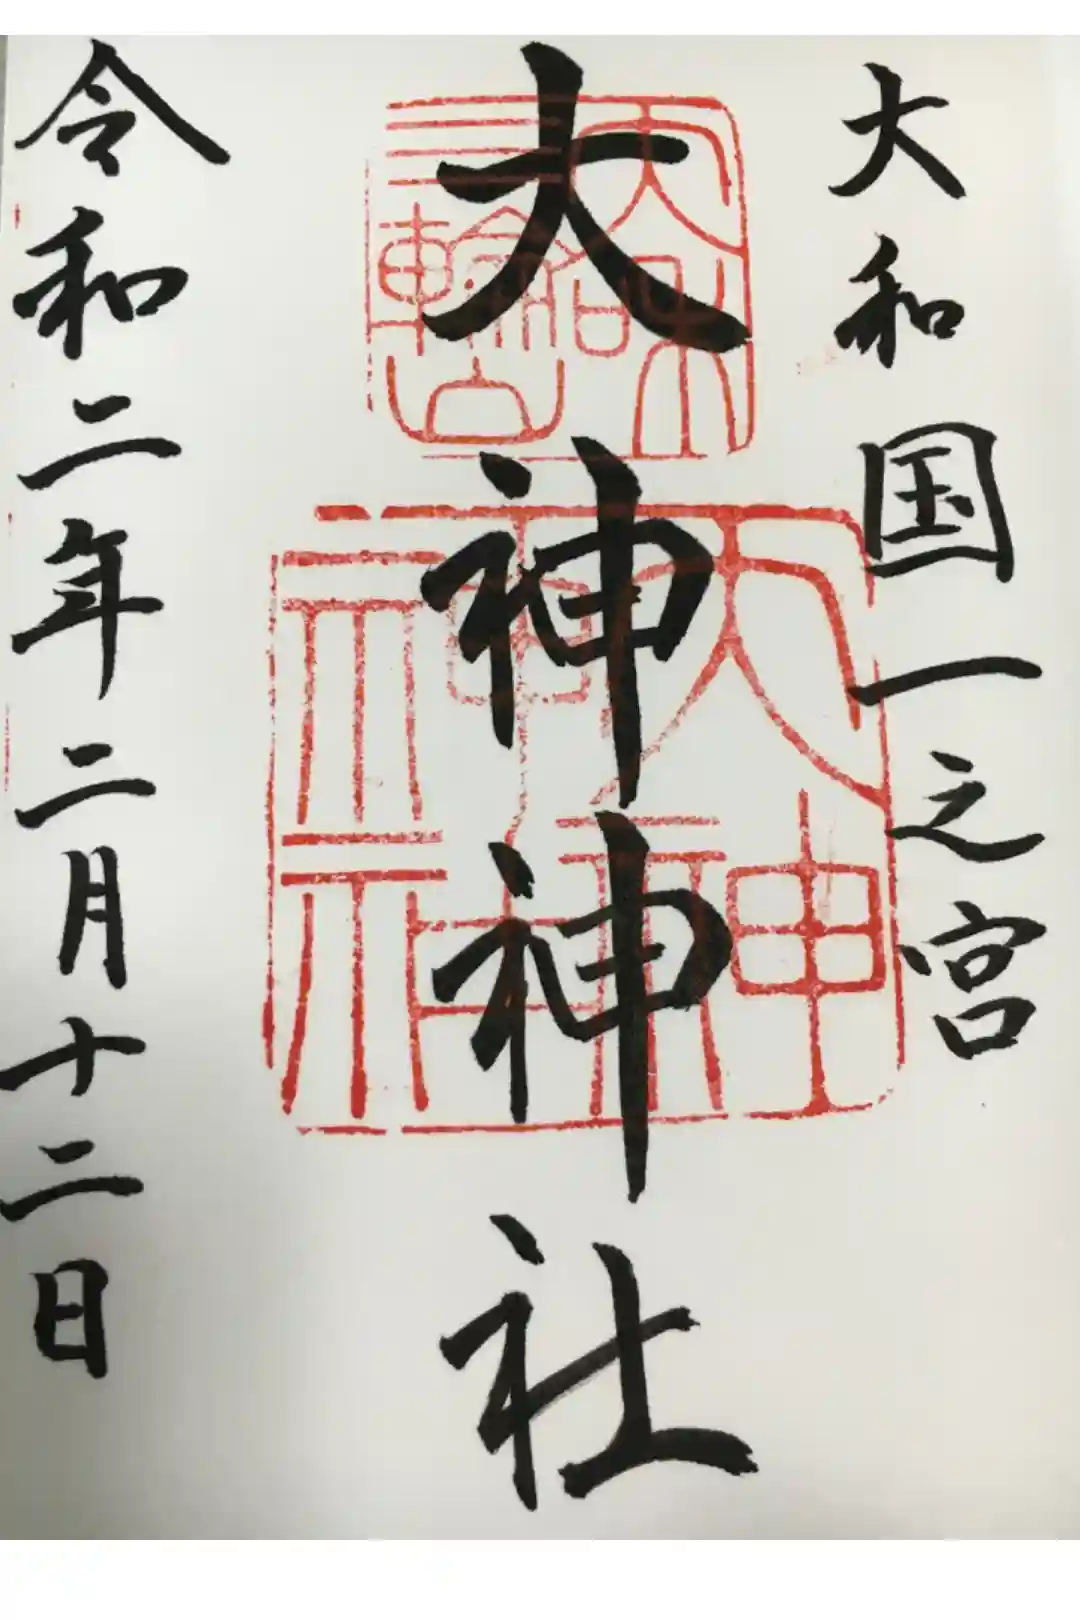 大和国一之宮
大神神社
令和二年二月十二日
大和
三輪山
大神
神社